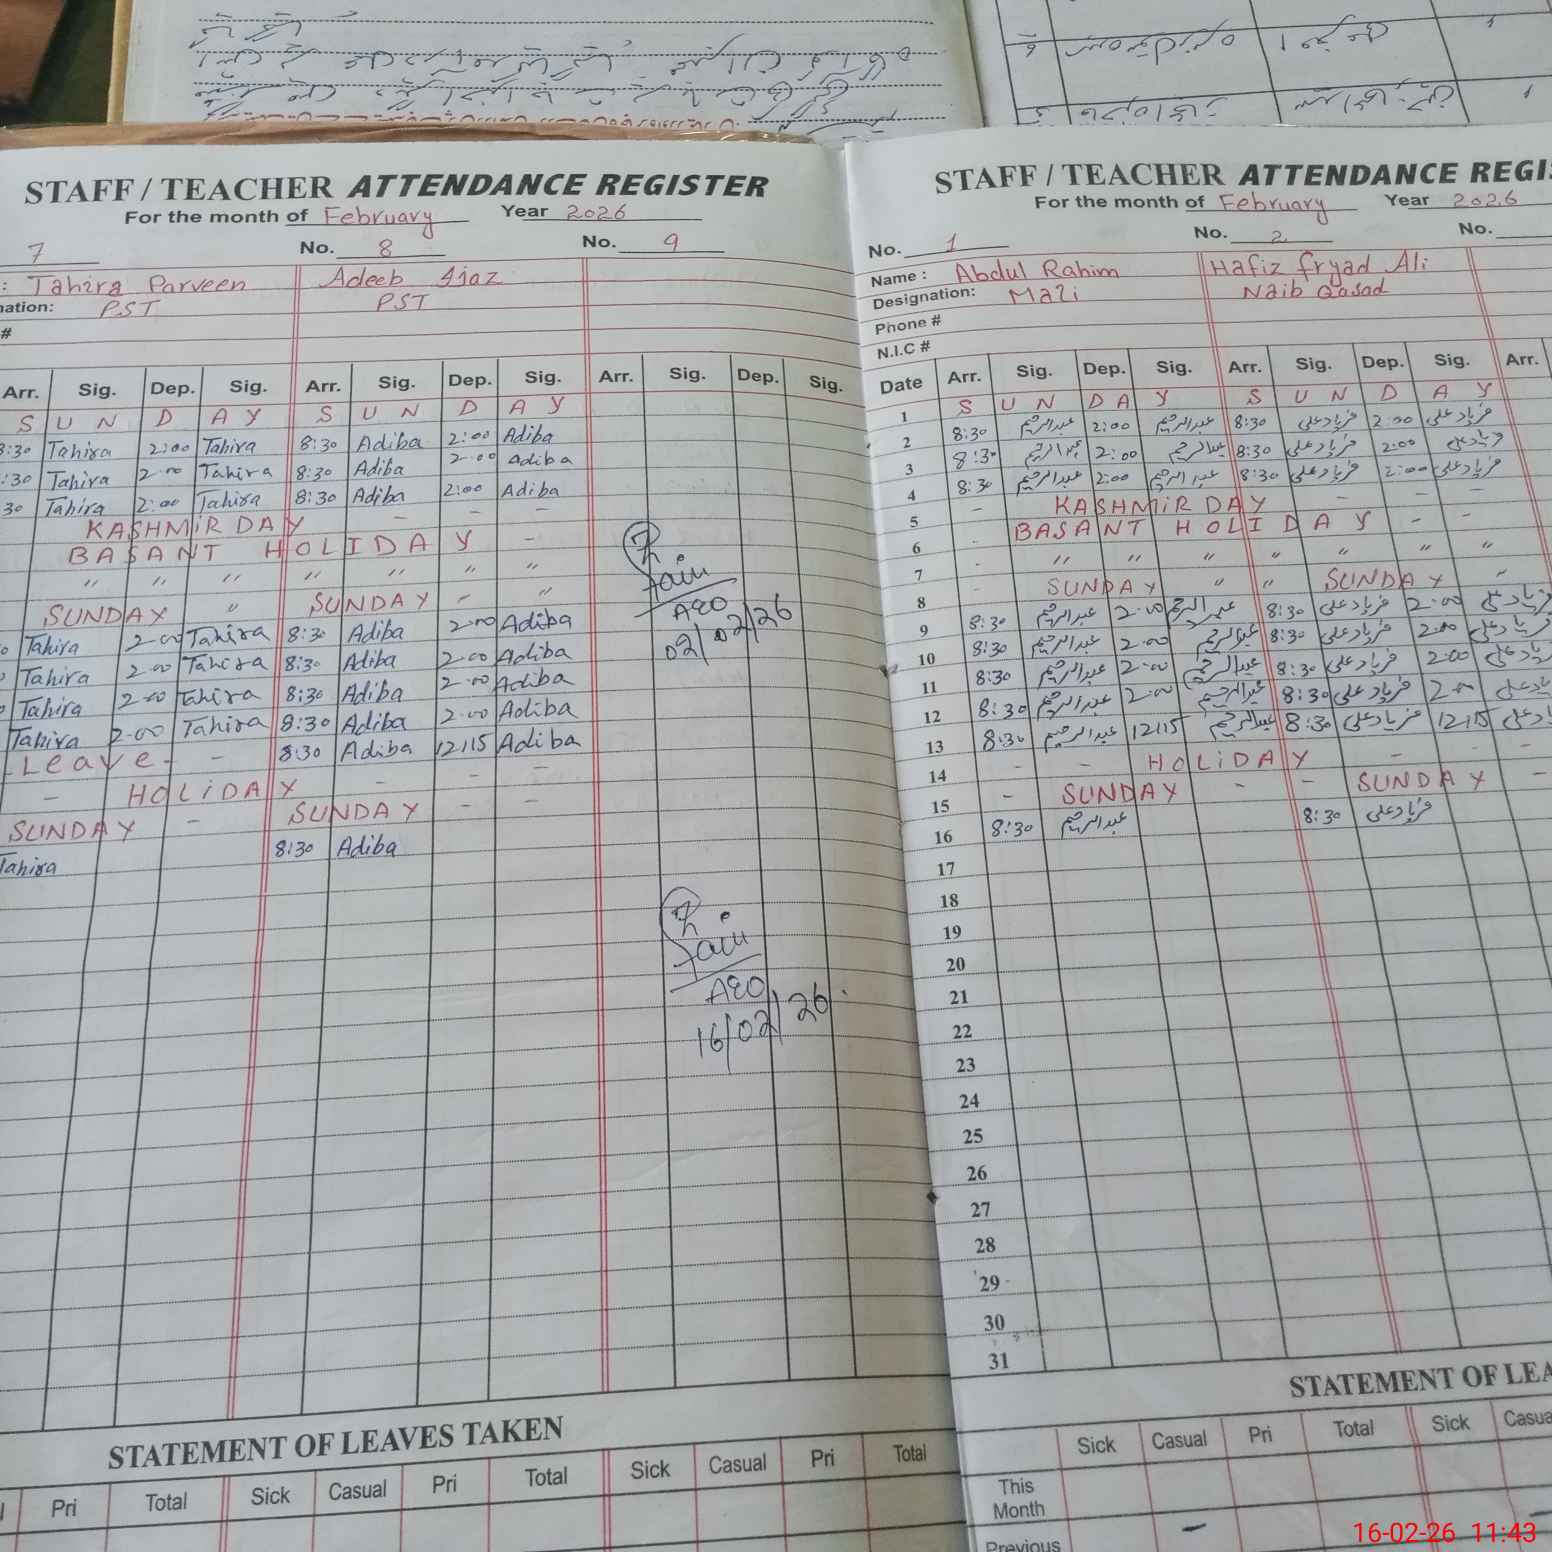 STAFF / TEACHER ATTENDANCE REGISTER
For the month of February Year 2026
7 No. 8 No. 9
: Tahira Parveen Adeeb Ajaz
nation: PST PST
#
Arr. Sig. Dep. Sig. Arr. Sig. Dep. Sig. Arr. Sig. Dep. Sig.
S U N D A Y S U N D A Y
8:30 Tahira 2:00 Tahira 8:30 Adiba 2:00 Adiba
:30 Tahira 2:00 Tahira 8:30 Adiba 2:00 adiba
30 Tahira 2:00 Tahira 8:30 Adiba 2:00 Adiba
KASHMiR DAY - -
BASANT HOLIDAY -
" " " " " " "
SUNDAY " SUNDAY - "
Tahira 2:00 Tahira 8:30 Adiba 2:00 Adiba
Tahira 2:00 Tahira 8:30 Adiba 2:00 Adiba
Tahira 2:00 Tahira 8:30 Adiba 2:00 Adiba
Tahira 2:00 Tahira 8:30 Adiba 2:00 Adiba
Leave - 8:30 Adiba 12:15 Adiba
- HOLiDAY - - -
SUNDAY - SUNDAY - -
Tahira 8:30 Adiba
AEO
02/02/26
AEO
16/02/26
STATEMENT OF LEAVES TAKEN
Pri Total Sick Casual Pri Total Sick Casual Pri Total
STAFF / TEACHER ATTENDANCE REGIS
For the month of February Year 2026
No. 1 No. 2 No.
Name : Abdul Rahim Hafiz fryad Ali
Designation: Mali Naib Qasad
Phone #
N.I.C #
Date Arr. Sig. Dep. Sig. Arr. Sig. Dep. Sig. Arr.
1 S U N D A Y S U N D A Y
2 8:30 عبدالرحیم 2:00 عبدالرحیم 8:30 فریاد علی 2:00 فریاد علی
3 8:30 عبدالرحیم 2:00 عبدالرحیم 8:30 فریاد علی 2:00 فریاد علی
4 8:30 عبدالرحیم 2:00 عبدالرحیم 8:30 فریاد علی 2:00 فریاد علی
5 - KASHMiR DAY - - -
6 - BASANT HOLIDAY - -
7 - " " " " " "
8 - SUNDAY " " SUNDAY "
9 8:30 عبدالرحیم 2:00 عبدالرحیم 8:30 فریاد علی 2:00 فریاد علی
10 8:30 عبدالرحیم 2:00 عبدالرحیم 8:30 فریاد علی 2:00 فریاد علی
11 8:30 عبدالرحیم 2:00 عبدالرحیم 8:30 فریاد علی 2:00 یاد علی
12 8:30 عبدالرحیم 2:00 عبدالرحیم 8:30 فریاد علی 2:00 یاد علی
13 8:30 عبدالرحیم 12:15 عبدالرحیم 8:30 فریاد علی 12:15 یاد علی
14 - - HOLiDAY - - -
15 - SUNDAY - - SUNDAY -
16 8:30 عبدالرحیم 8:30 فریاد علی
17
18
19
20
21
22
23
24
25
26
27
28
29
30
31
STATEMENT OF LEA
Sick Casual Pri Total Sick Casua
This
Month
Previous -
16-02-26 11:43